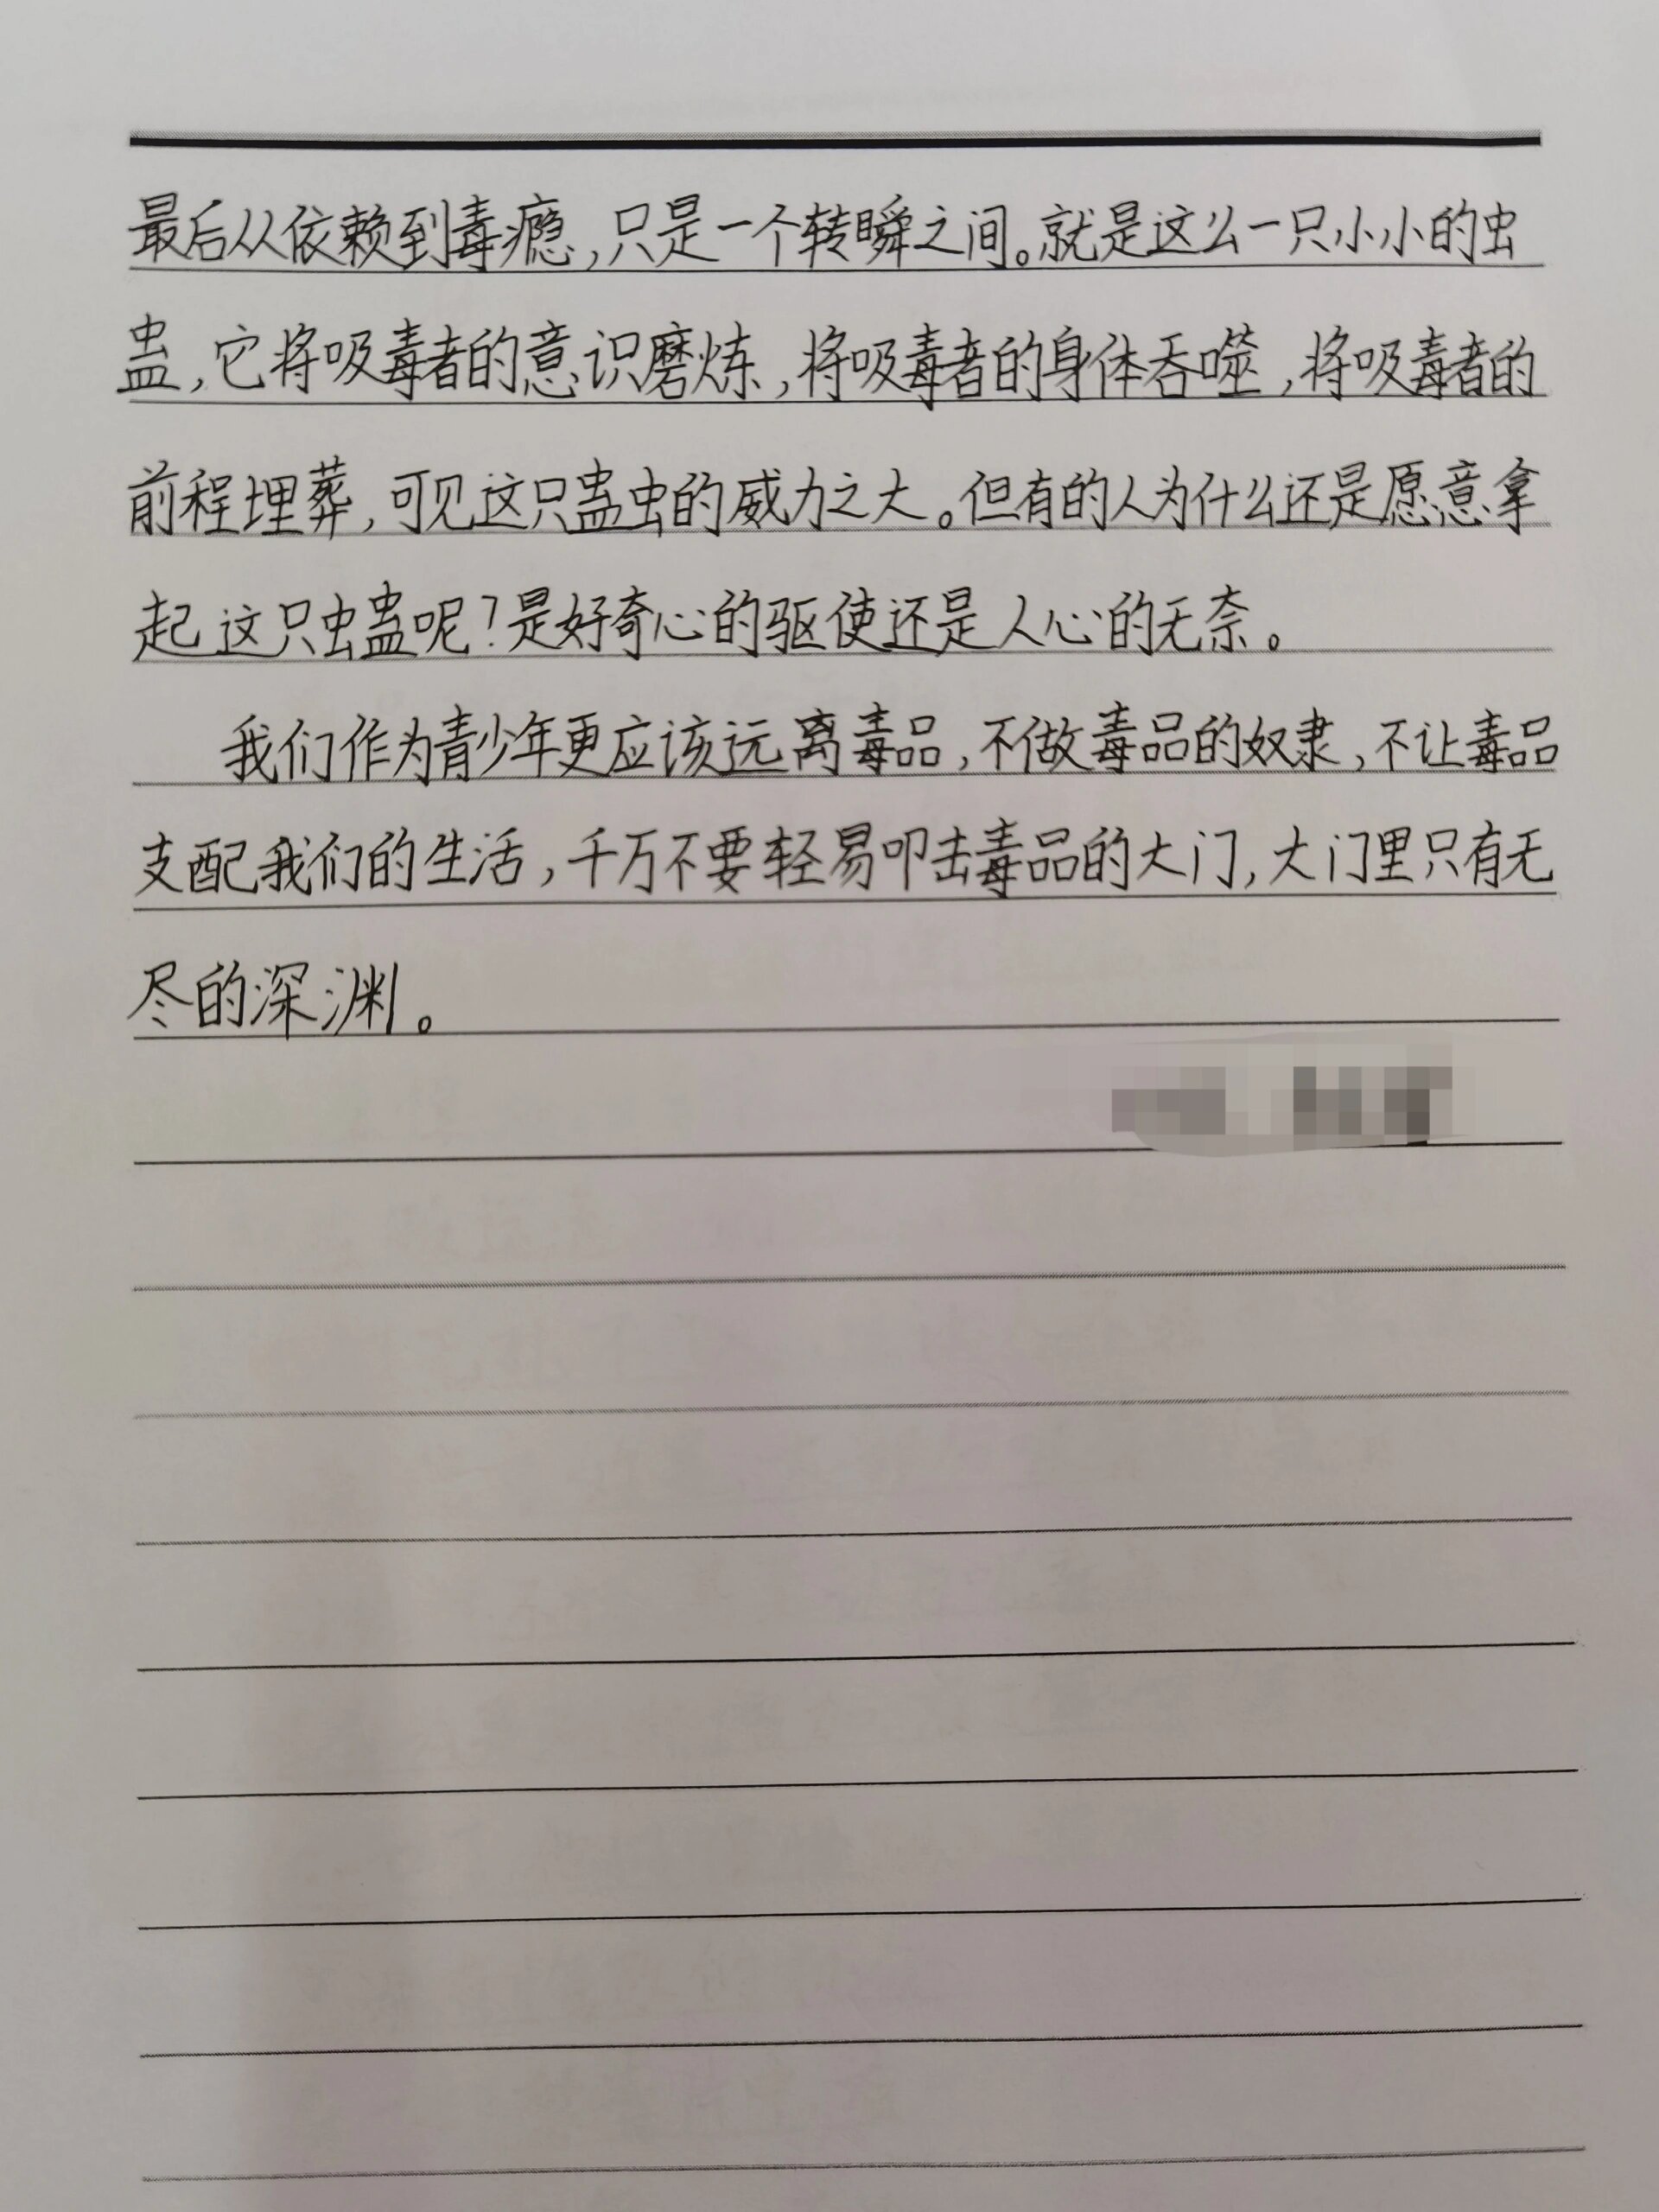 最后从依赖到毒瘾,只是一个转瞬之间。就是这么一只小小的虫
蛊,它将吸毒者的意识磨炼,将吸毒者的身体吞噬,将吸毒者的
前程埋葬,可见这只蛊虫的威力之大。但有的人为什么还是愿意拿
起这只虫蛊呢?是好奇心的驱使还是人心的无奈。
我们作为青少年更应该远离毒品,不做毒品的奴隶,不让毒品
支配我们的生活,千万不要轻易叩击毒品的大门,大门里只有无
尽的深渊。